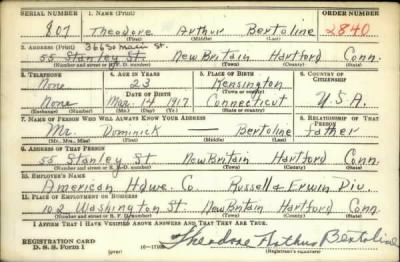 SERIAL NUMBER 1. NAME (Print) ORDER NUMBER
807 Theodore Arthur Bertoline 2840
(First) (Middle) (Last)
2. ADDRESS (Print) 366 So main St.
55 Stanley St New Britain Hartford Conn.
(Number and street or R. F. D. number) (Town) (County) (State)
3. TELEPHONE 4. AGE IN YEARS 5. PLACE OF BIRTH 6. COUNTRY OF CITIZENSHIP
None 23 Kensington
DATE OF BIRTH (Town or county)
None Mar. 14 1917 Connecticut U.S.A.
(Exchange) (Number) (Mo.) (Day) (Yr.) (State or country)
7. NAME OF PERSON WHO WILL ALWAYS KNOW YOUR ADDRESS 8. RELATIONSHIP OF THAT PERSON
Mr. Dominick — Bertoline father
(Mr., Mrs., Miss) (First) (Middle) (Last)
9. ADDRESS OF THAT PERSON
55 Stanley St New Britain Hartford Conn.
(Number and street or R. F. D. number) (Town) (County) (State)
10. EMPLOYER'S NAME
American Hdwe. Co. Russell & Erwin Div.
11. PLACE OF EMPLOYMENT OR BUSINESS
102 Washington St New Britain Hartford Conn.
(Number and street or R. F. D. number) (Town) (County) (State)
I AFFIRM THAT I HAVE VERIFIED ABOVE ANSWERS AND THAT THEY ARE TRUE.
REGISTRATION CARD
D. S. S. Form 1 (over) Theodore Arthur Bertoline
(Registrant's signature)